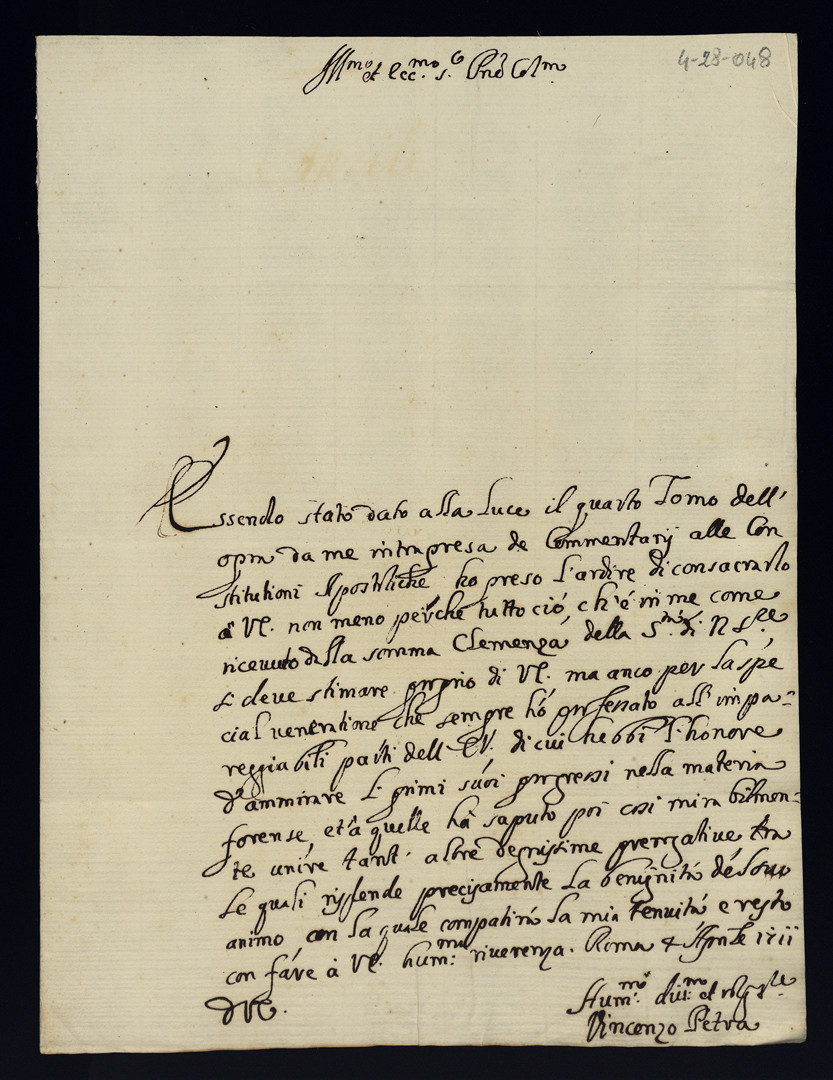 Ill.mo et Ecc.mo S.e Pnē Col.mo
4-28-048
Essendo stato dato alla luce il quarto Tomo dell'
opra da me intrapresa de Commentarij alle Con
stitutioni Apostoliche ho preso l'ardire di consacrarlo
à VE. non meno perche tutto ciò, ch'è in me come
ricevuto dalla somma Clemenza della S.tà di N S.re
si deve stimare proprio di VE. ma anco per la spe
cial veneratione che sempre hò professato all'impa=
reggiabili parti dell'EV. di cui hebbi l'honore
d'ammirare li primi suoi progressi nella materia
forense, et à quelle hà saputo poi così mirabilmen=
te unire tant' altre degnissime prerogative tra
le quali risplende precisamente la benignità del suo
animo con la quale compatirà la mia tenuità e resto
con fare à VE. hum.ma riverenza. Roma 4 Aprile 1711
D VE.
Hum.mo div.mo et oblg.
Vincenzo Petra